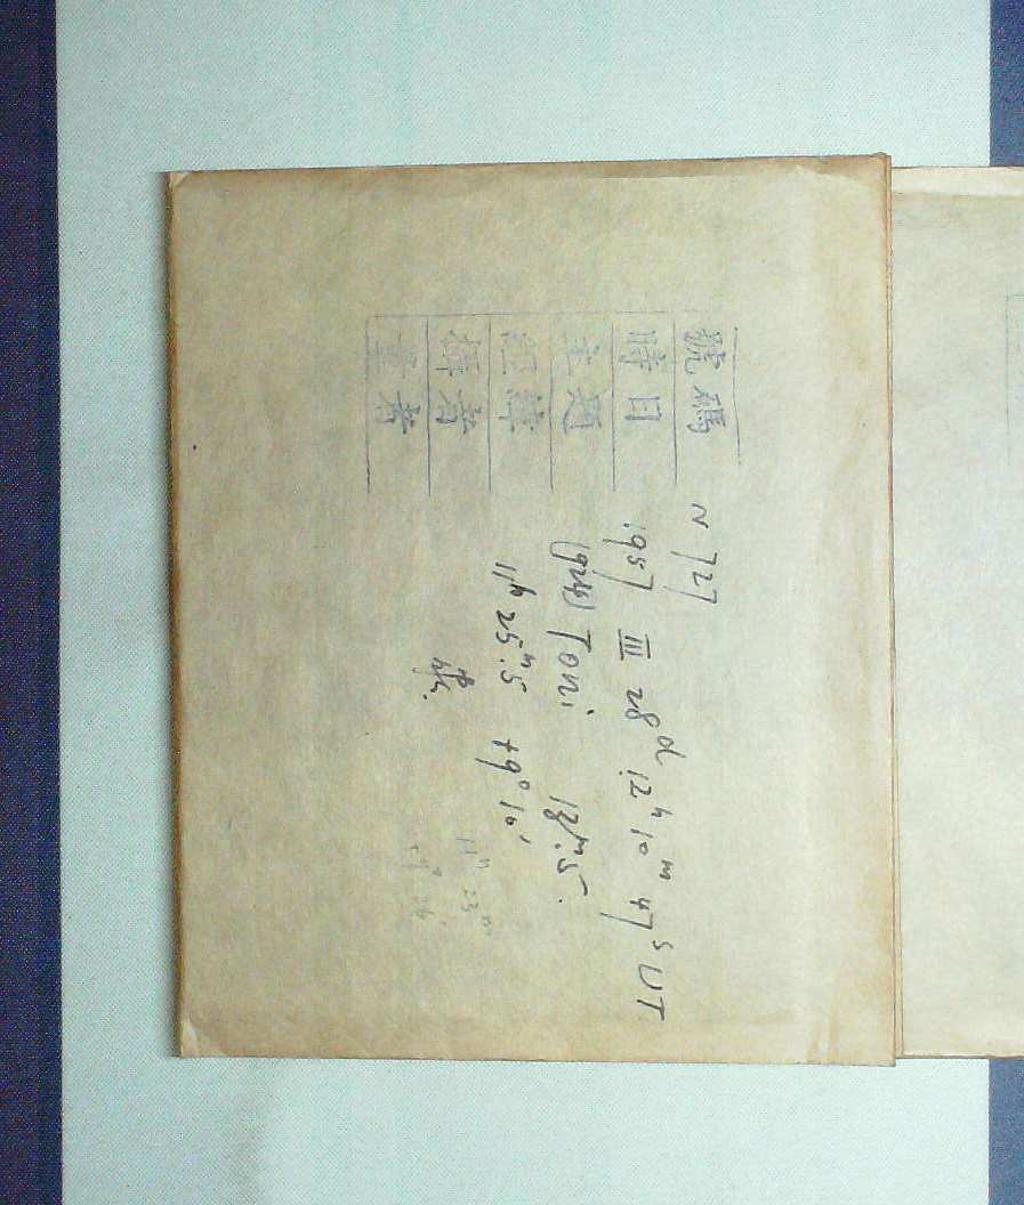 號碼 N 727
時日 1957 III 28d 12h 10m 47s UT
主題 (924) Toni 13m.5
經緯 11h 25m.5 +9° 10'
攝者
量者
11h 23m